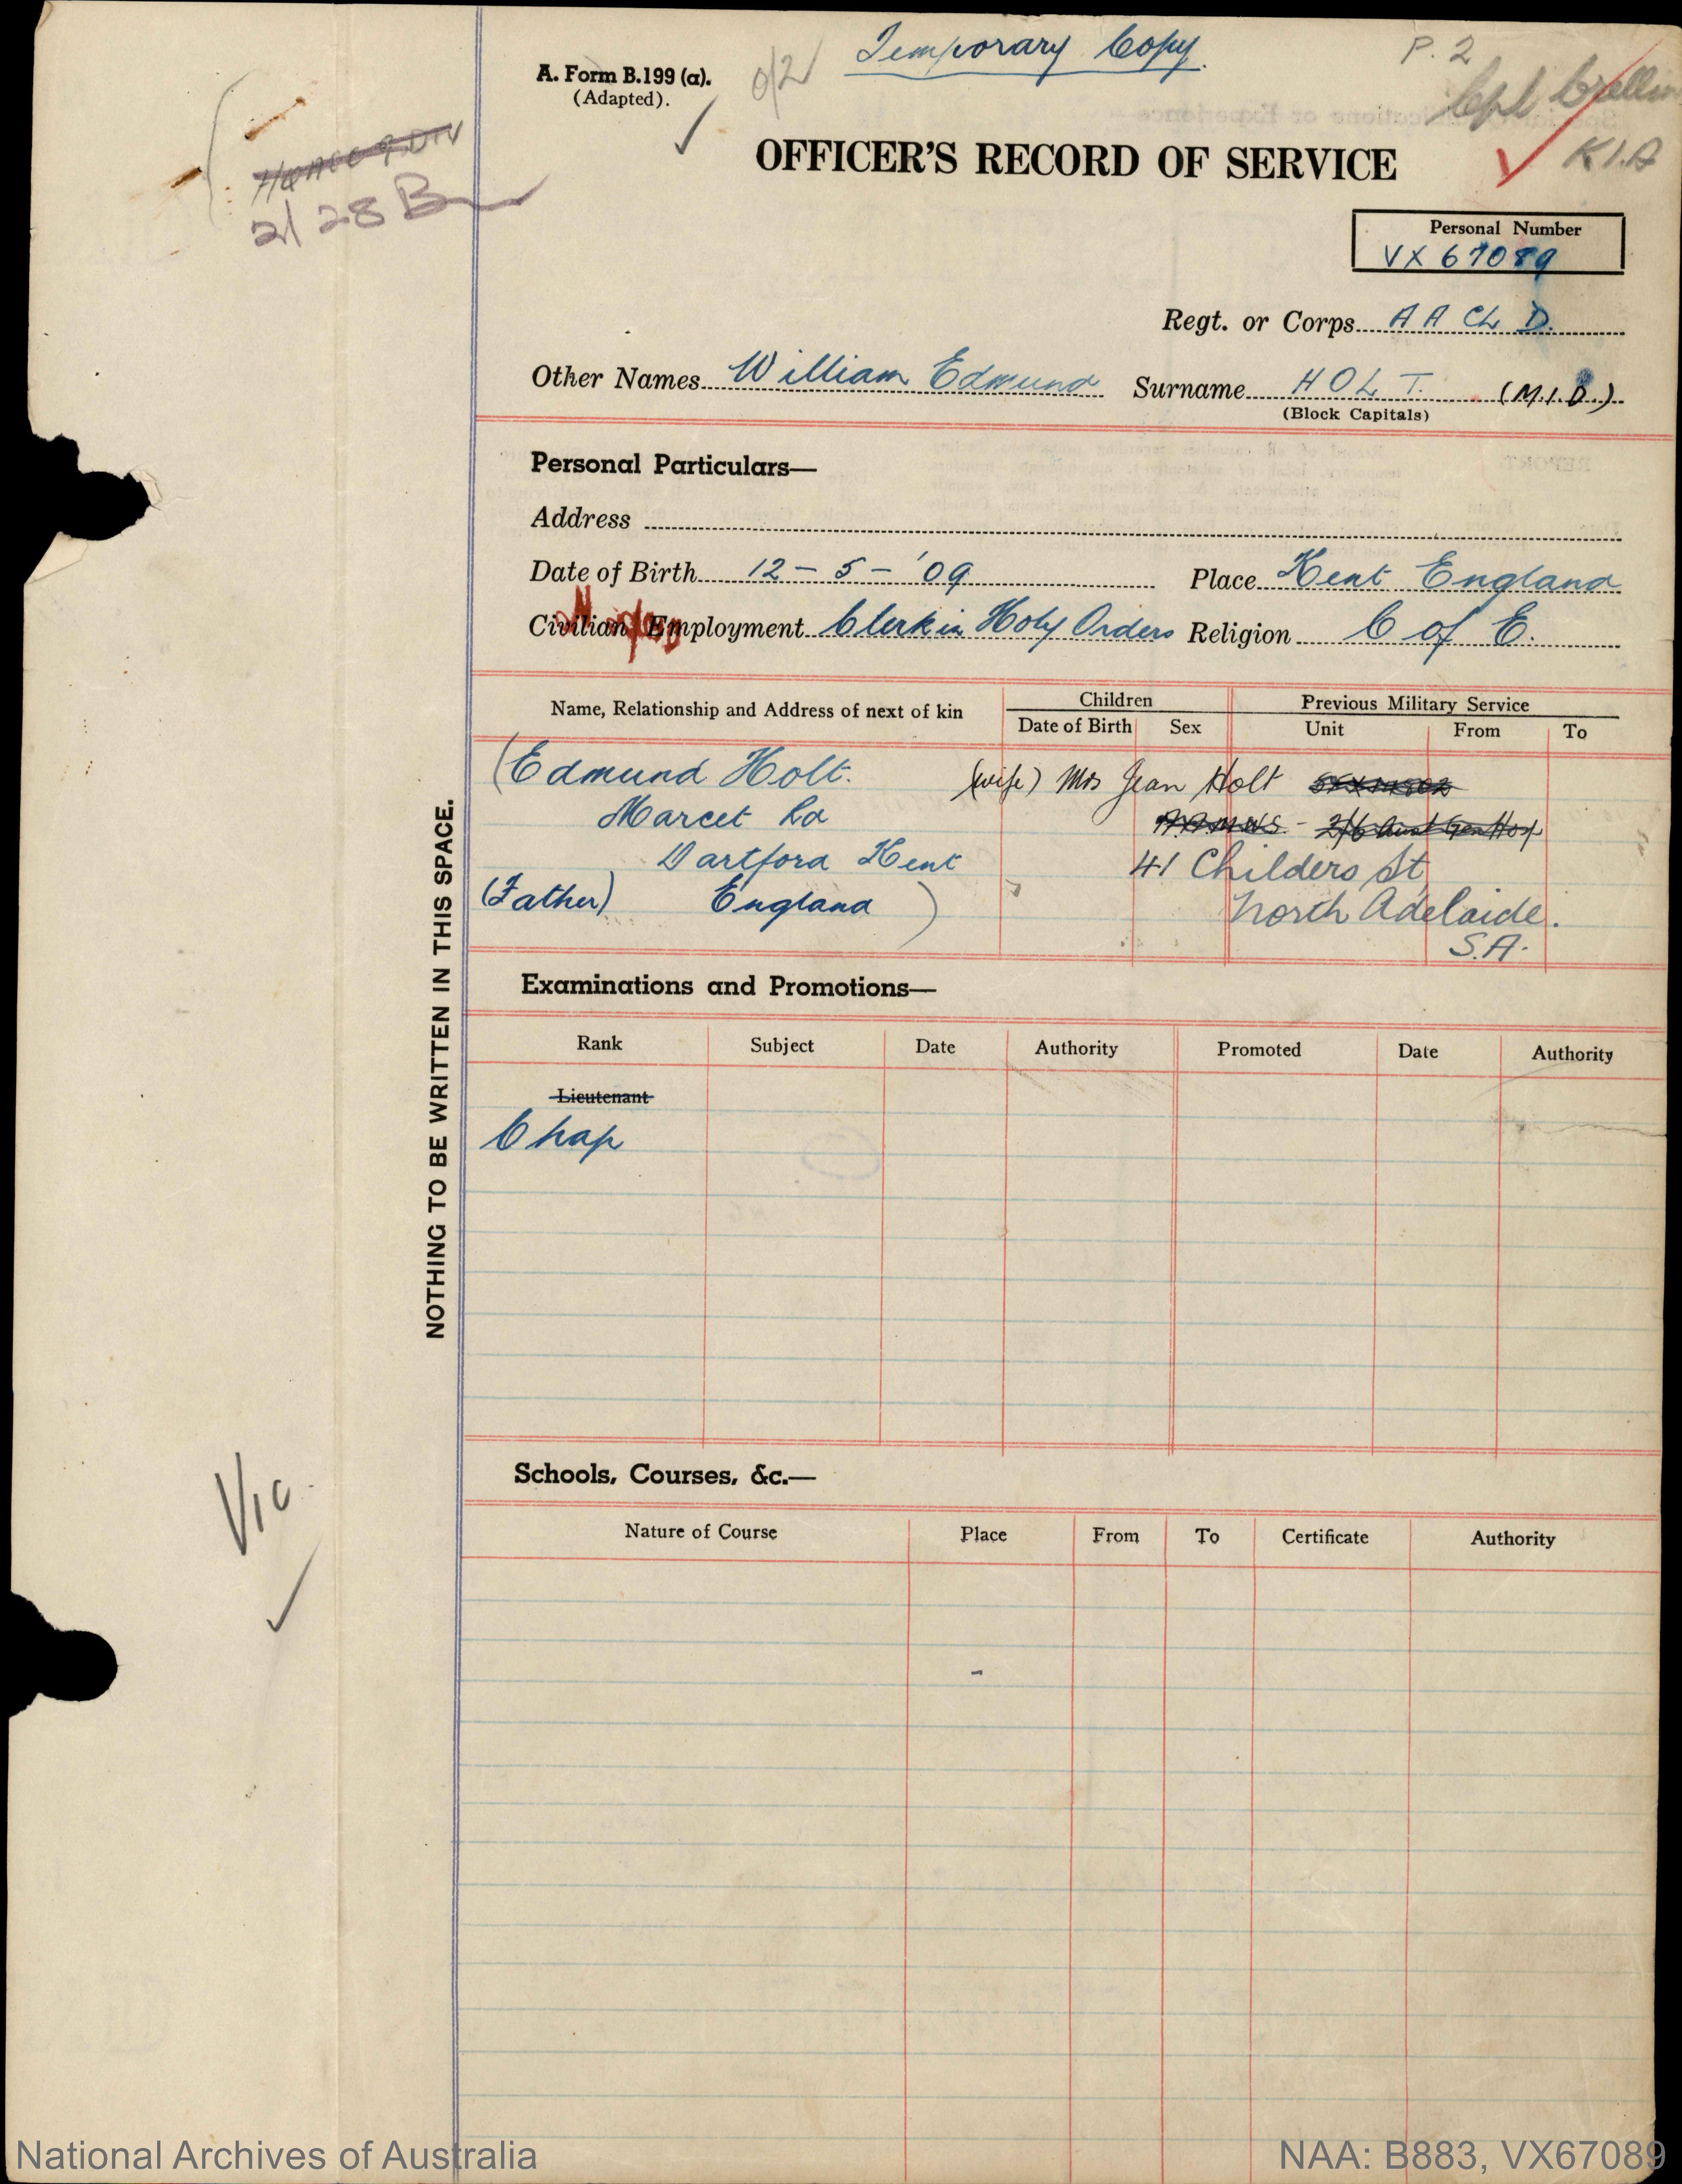 Temporary Copy.
P. 2
A. Form B.199 (a).
(Adapted).
Cpl
K.I.A
OFFICER'S RECORD OF SERVICE
HQ AASC 9 DIV
2/28 Bn
Personal Number
VX 67089
Regt. or Corps A A Ch D.
Other Names William Edmund Surname HOLT. (M.I.D.)
(Block Capitals)
Personal Particulars—
Address
Date of Birth 12 - 5 - '09 Place Kent England
Civilian Employment Clerk in Holy Orders Religion C of E.
Name, Relationship and Address of next of kin Children Previous Military Service
Date of Birth Sex Unit From To
(Edmund Holt. (wife) Mrs Jean Holt
Marcet Rd A.A.M.W.S. - 2/6 Aust Gen Hosp
Dartford Kent 41 Childers St
(Father) England ) North Adelaide.
S.A.
Examinations and Promotions—
Rank Subject Date Authority Promoted Date Authority
Lieutenant
Chap
NOTHING TO BE WRITTEN IN THIS SPACE.
Vic.
Schools, Courses, &c.—
Nature of Course Place From To Certificate Authority
National Archives of Australia NAA: B883, VX67089